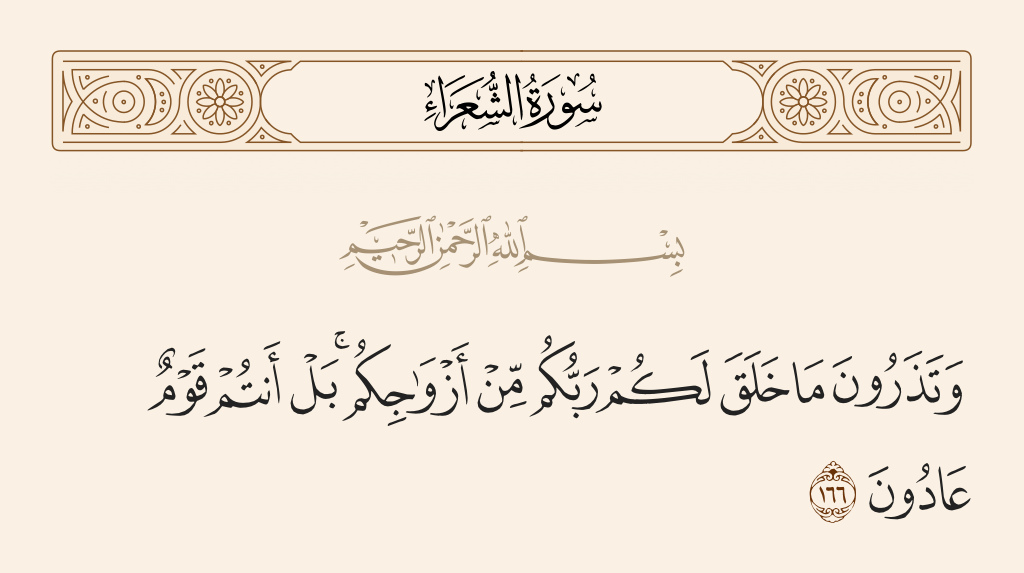 سُورَةُ الشُّعَرَاءِ
بِسْمِ ٱللَّهِ ٱلرَّحْمَٰنِ ٱلرَّحِيمِ
وَتَذَرُونَ مَا خَلَقَ لَكُمْ رَبُّكُم مِّنْ أَزْوَٰجِكُم ۚ بَلْ أَنتُمْ قَوْمٌ
عَادُونَ ١٦٦